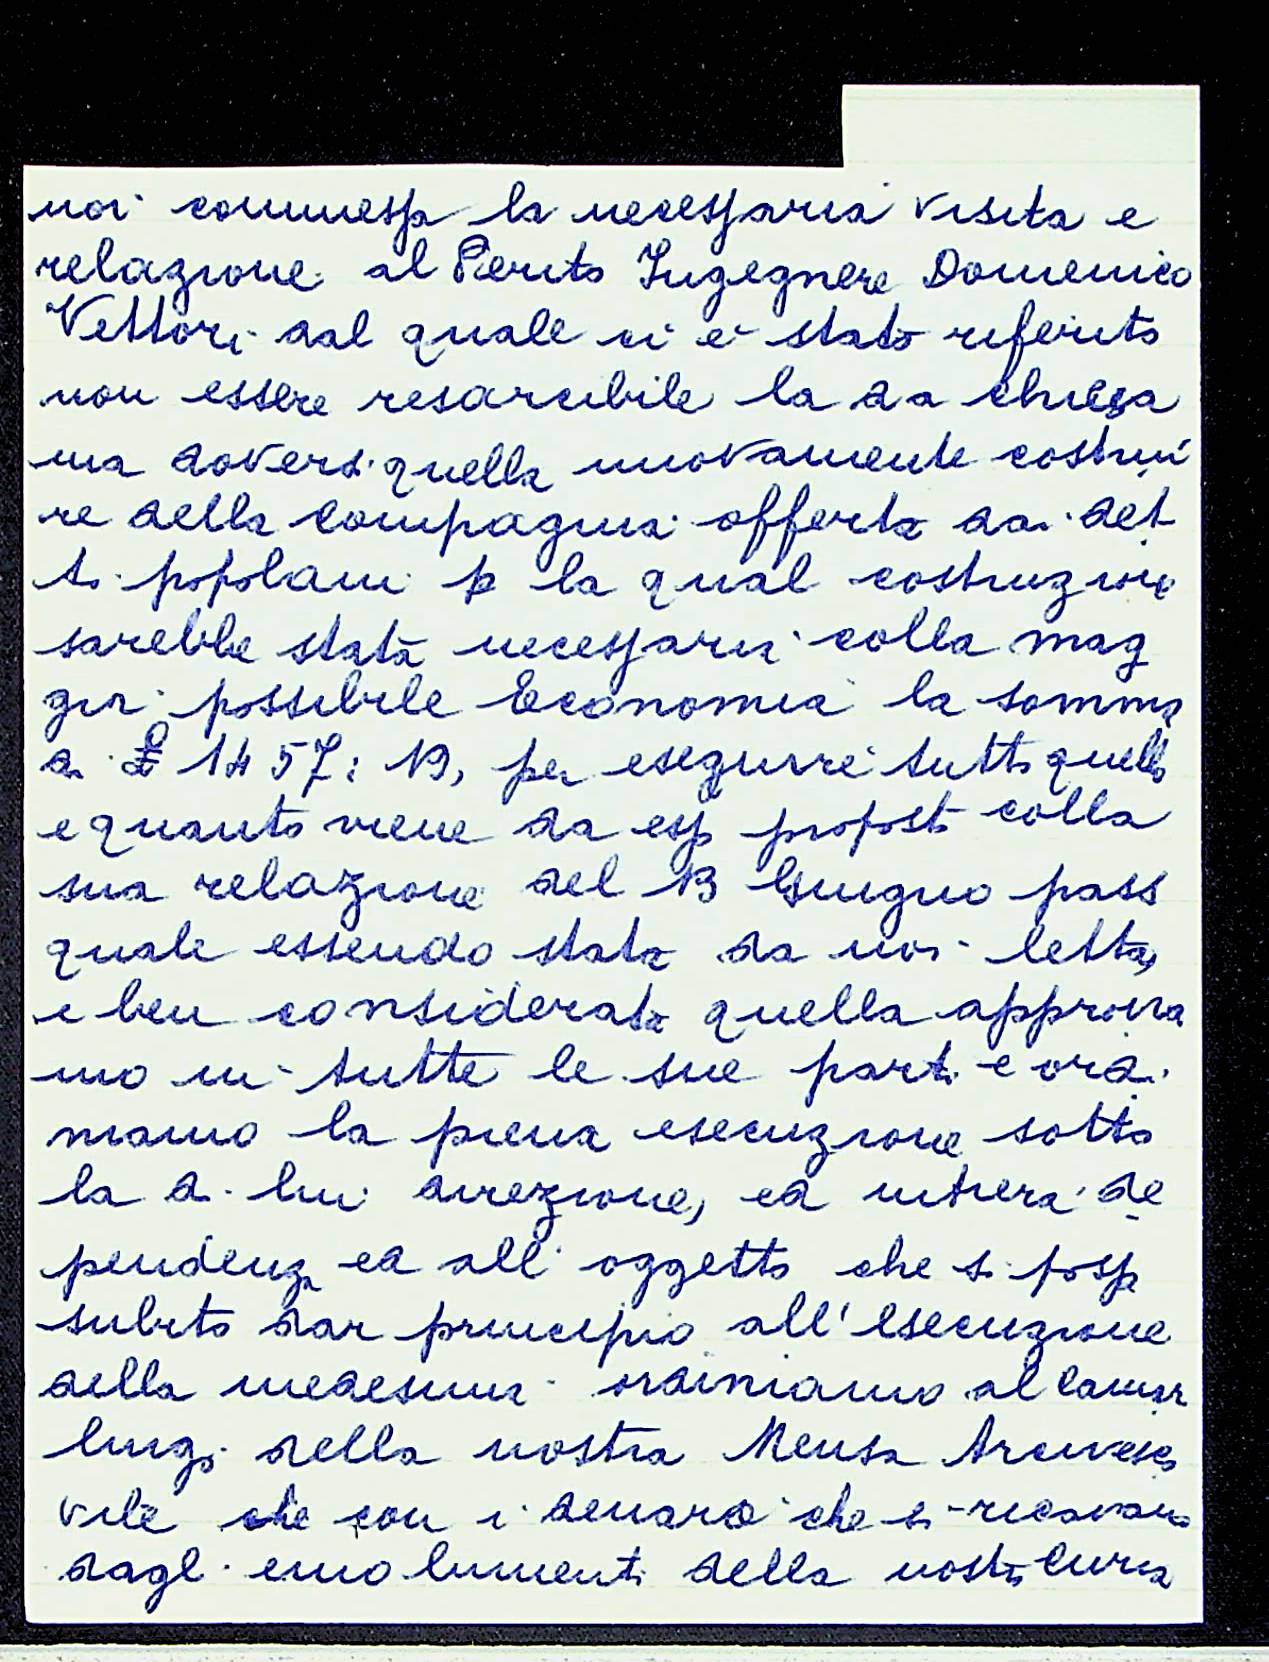 noi commessa la necessaria visita e
relazione al Perito Ingegnere Domenico
Vettori dal quale ci è stato riferito
non essere resarcibile la da chiesa
ma doversi quella nuovamente costrui
re della Compagnia offerta dai det
ti popolani p la qual costruzione
sarebbe stata necessaria colla mag
gior possibile Economia la somma
di £ 1457: 19, per eseguire tutto quello
e quanto viene da esso proposto colla
sua relazione del 13 Giugno pass
quale essendo stata da noi letta,
e ben considerata quella approvia
mo in tutte le sue parti e ordi
niamo la piena esecuzione sotto
la di lui direzione, ed intiera de
pendenza ed all' oggetto che si possa
subito dar principio all' esecuzione
della medesima ordiniamo al Camar
lingo della nostra Mensa Arcivesco
vile che con i denaro che si ricavano
dagl emolumenti della nostra Curia